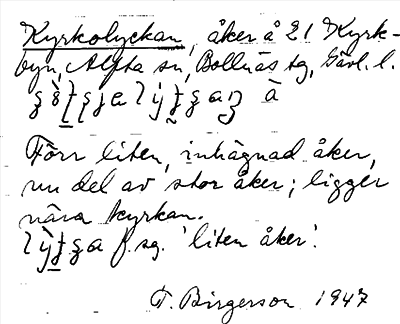 Kyrkolyckan, åker å 21 Kyrk-
byn, Alfta sn, Bollnäs tg, Gävl. l.
Förr liten, inhägnad åker,
nu del av stor åker; ligger
nära kyrkan.
f. sg. 'liten åker'.
T. Birgerson 1947